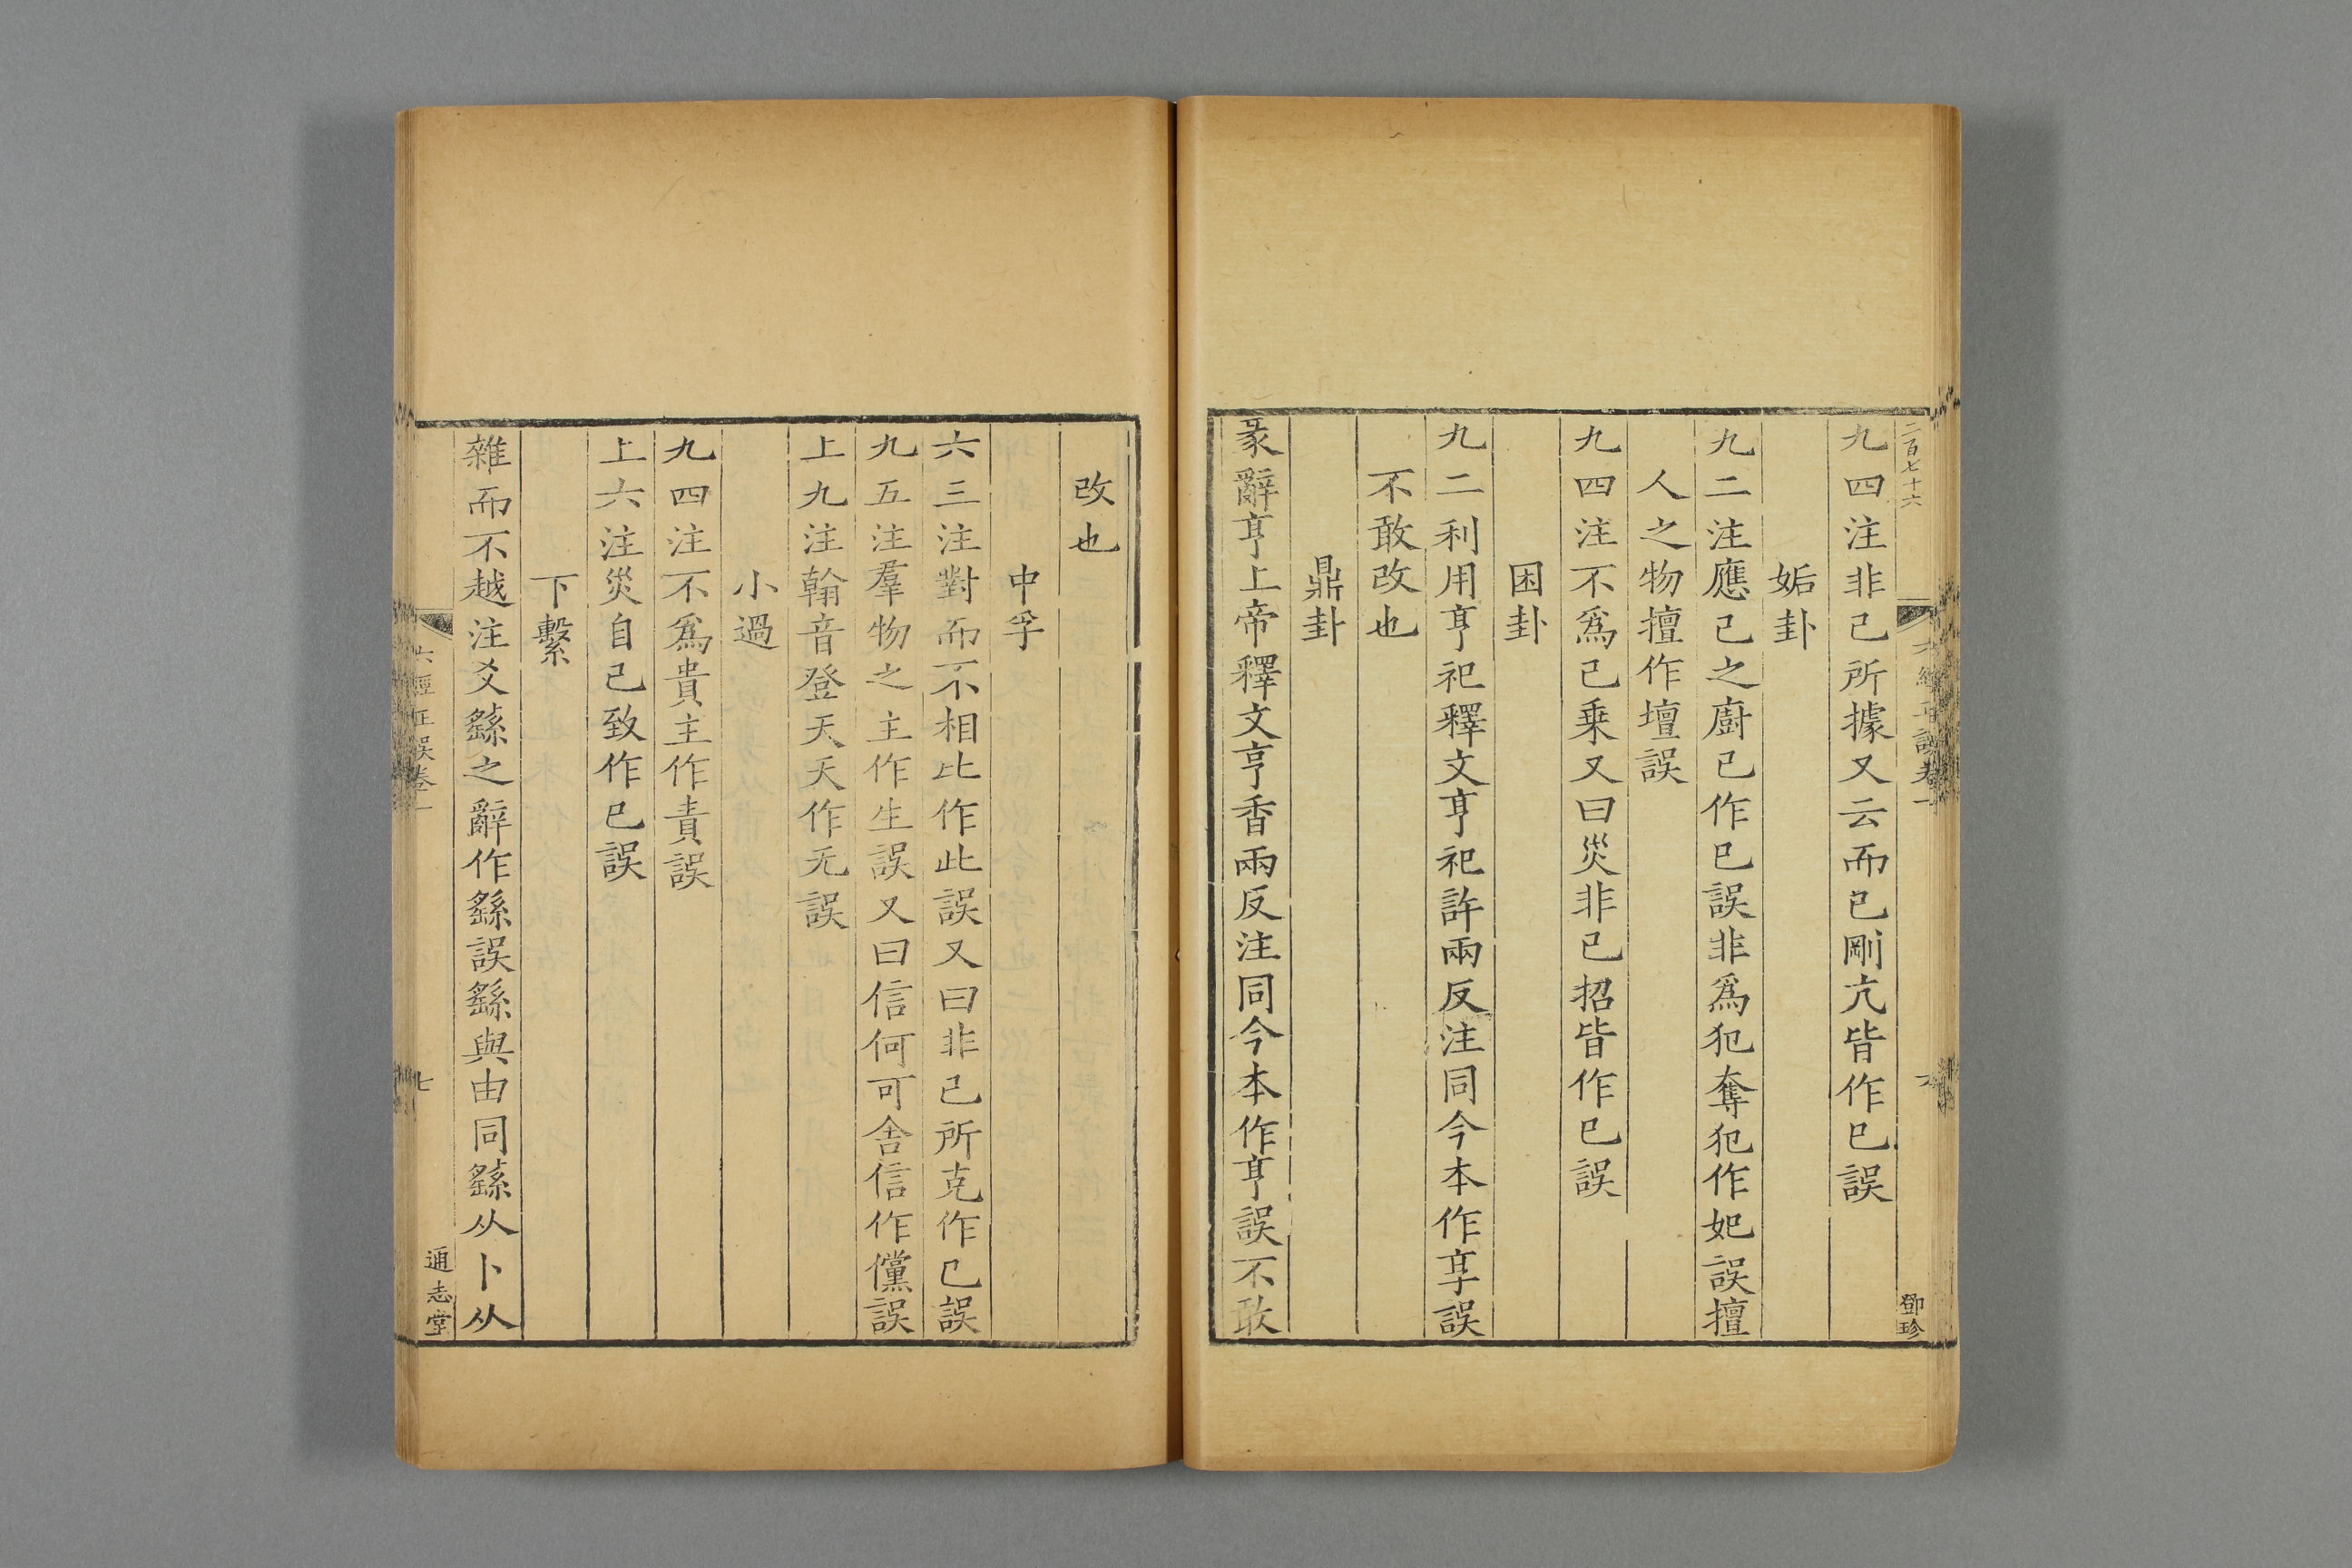 二百七十六
六經正誤卷一
六
鄧珍
九四注非己所據又云而已剛亢皆作巳誤
姤卦
九二注應己之廚己作巳誤非爲犯奪犯作妃誤擅
人之物擅作壇誤
九四注不爲己乗又曰災非己招皆作巳誤
困卦
九二利用亨祀釋文亨祀許兩反注同今本作享誤
不敢改也
鼎卦
彖辭亨上帝釋文亨香兩反注同今本作亨誤不敢
改也
中孚
六三注對而不相比作此誤又曰非己所克作已誤
九五注羣物之主作生誤又曰信何可舍信作儻誤
上九注翰音登天天作无誤
小過
九四注不爲貴主作責誤
上六注災自己致作巳誤
下繫
雜而不越注爻繇之辭作繇誤繇與由同繇从卜从
六經正誤卷一
七
通志堂